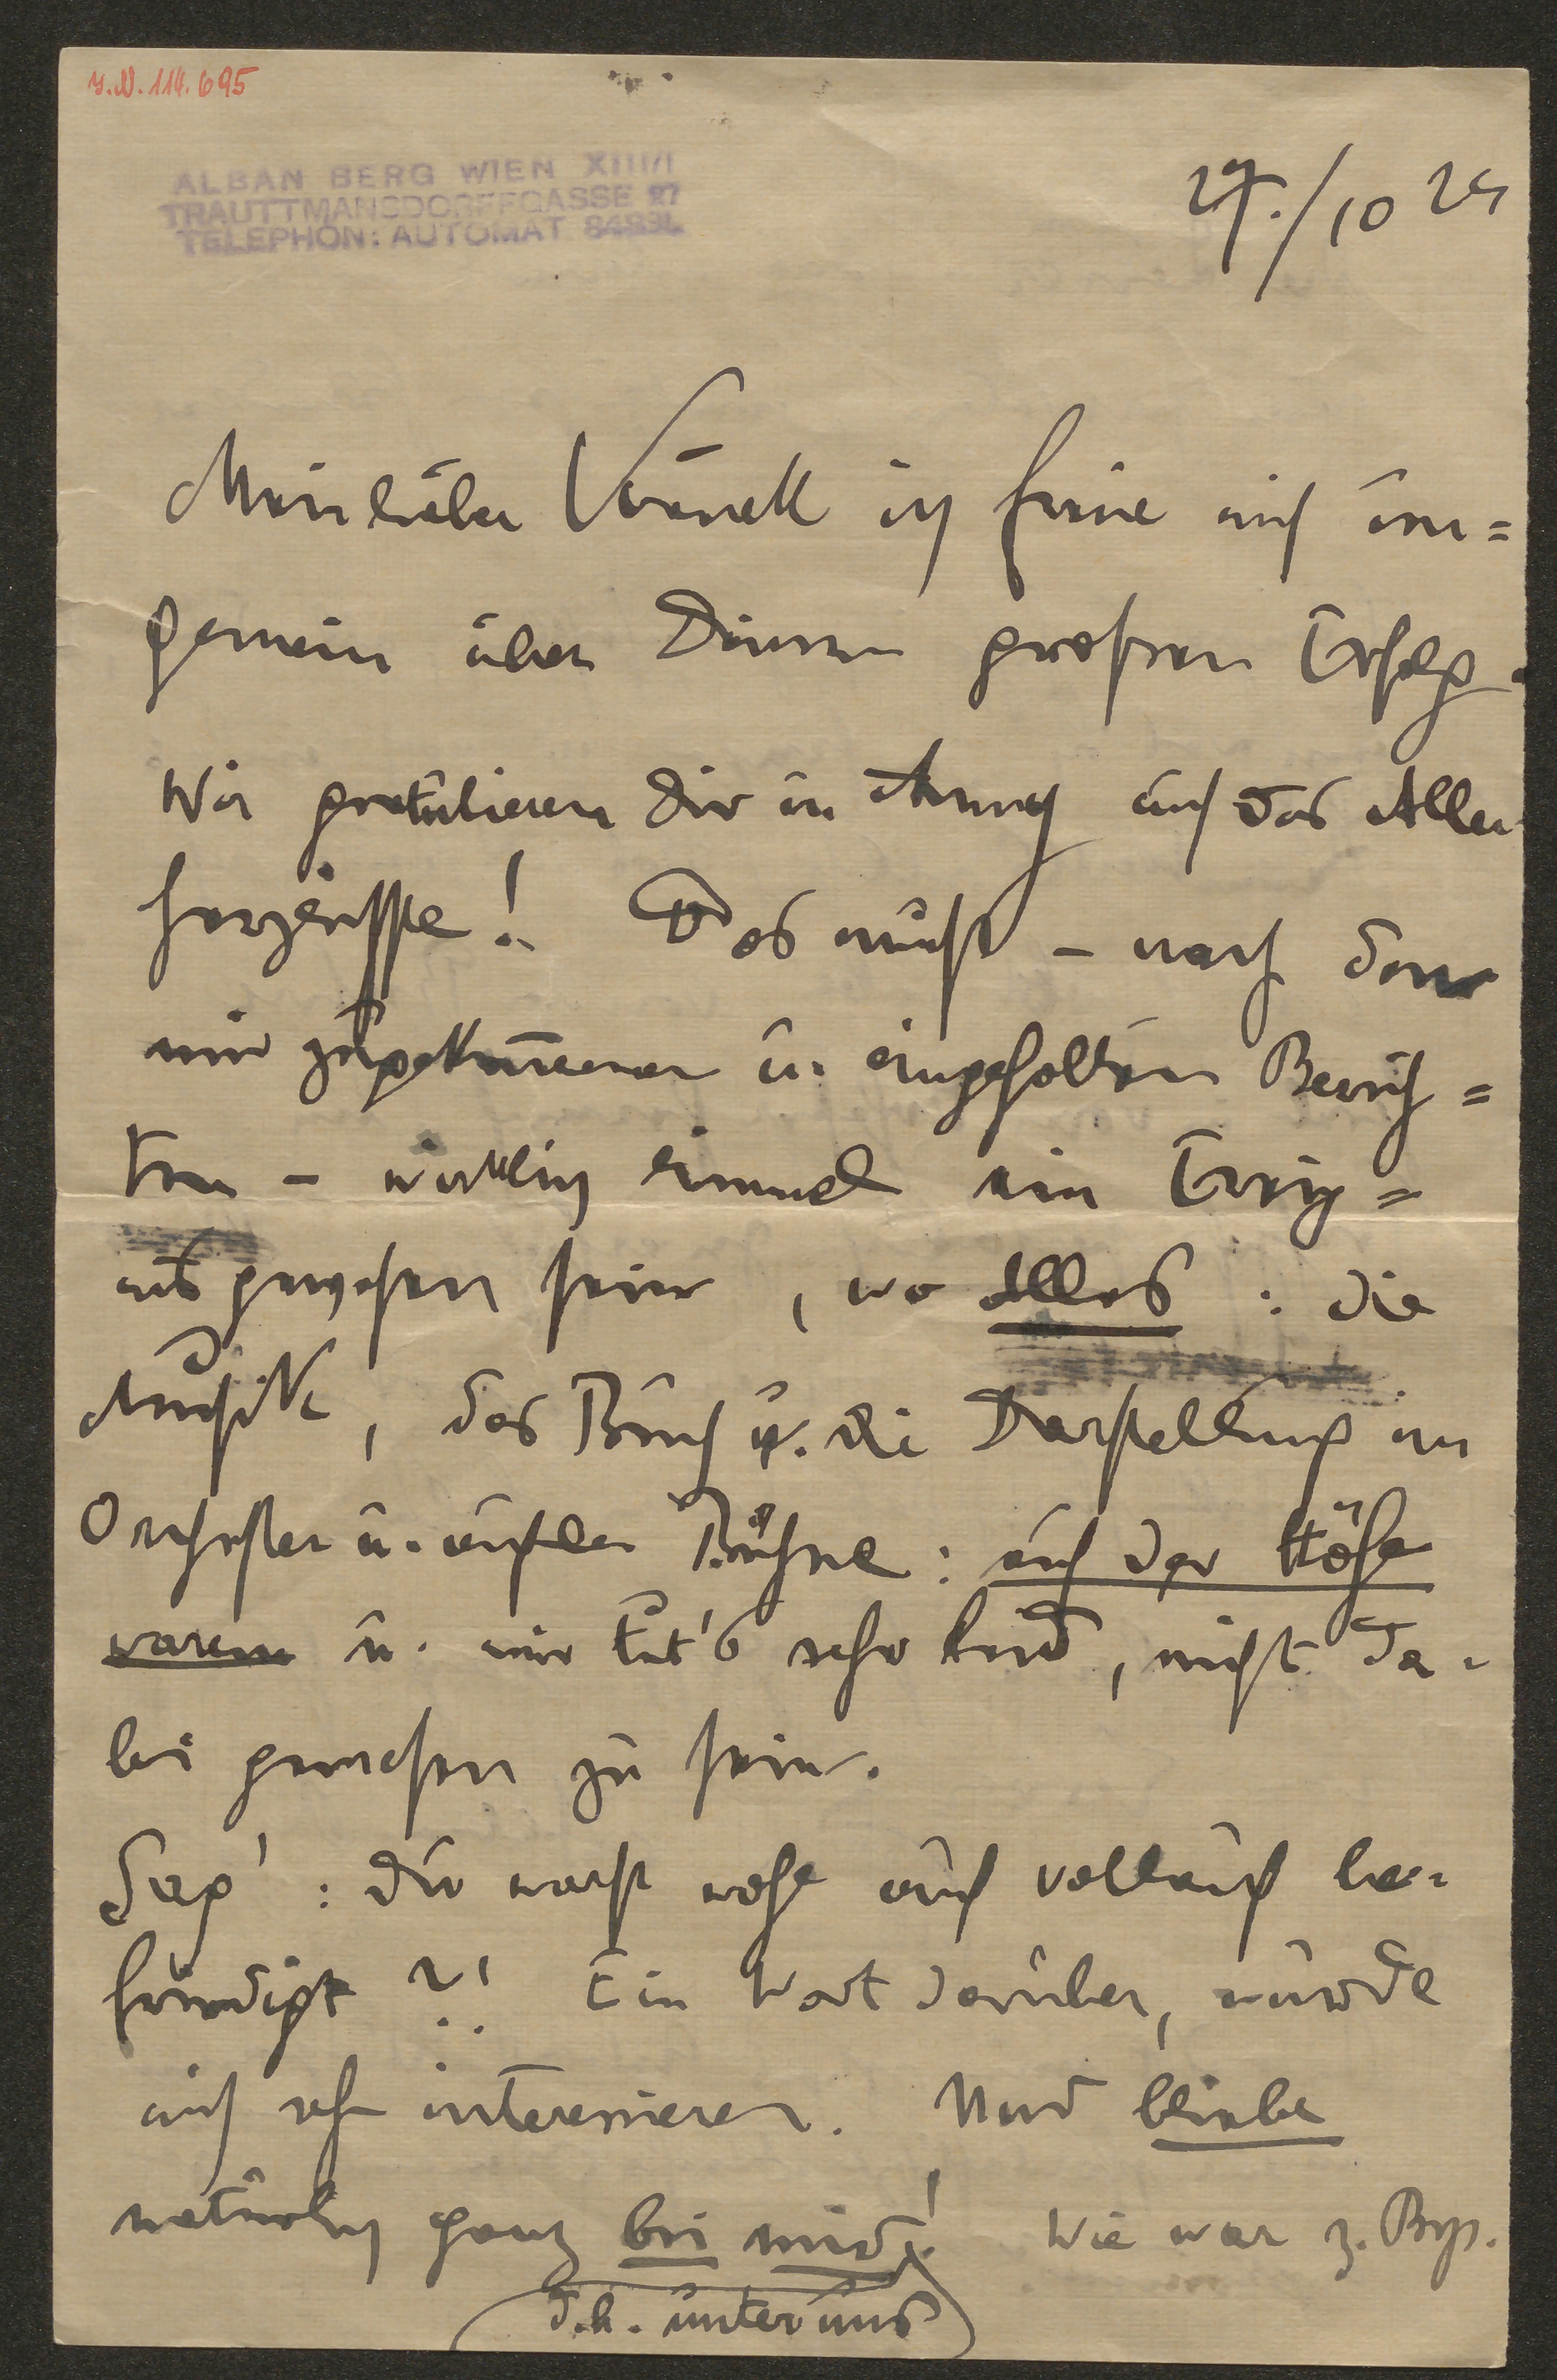 I.N. 114.695
ALBAN BERG WIEN XIII/1
TRAUTTMANSDORFFGASSE 27
TELEPHON: AUTOMAT 84831
27./10 24
Mein lieber ich freue mich un=
gemein über Deinen großen Erfolg.
Wir gratulieren Dir u. auf das Aller
herzlichste! Das muß – nach den
mir zugekommenen u. eingeholten Berich=
ten – wirklich einmal ein Ereig=
nis gewesen sein, wo Alles: die
Musik, das Buch u. die Darstellung im
Orchester u. auf der Bühne: auf der Höhe
waren u. mir tut's sehr leid, nicht da=
bei gewesen zu sein.
Sag': Du warst wohl auch vollauf be=
friedigt?! Ein Wort darüber, würde
mich sehr interessieren. Und bliebe
natürlich ganz bei mir! Wie war z. Bsp.
d.h. unter uns